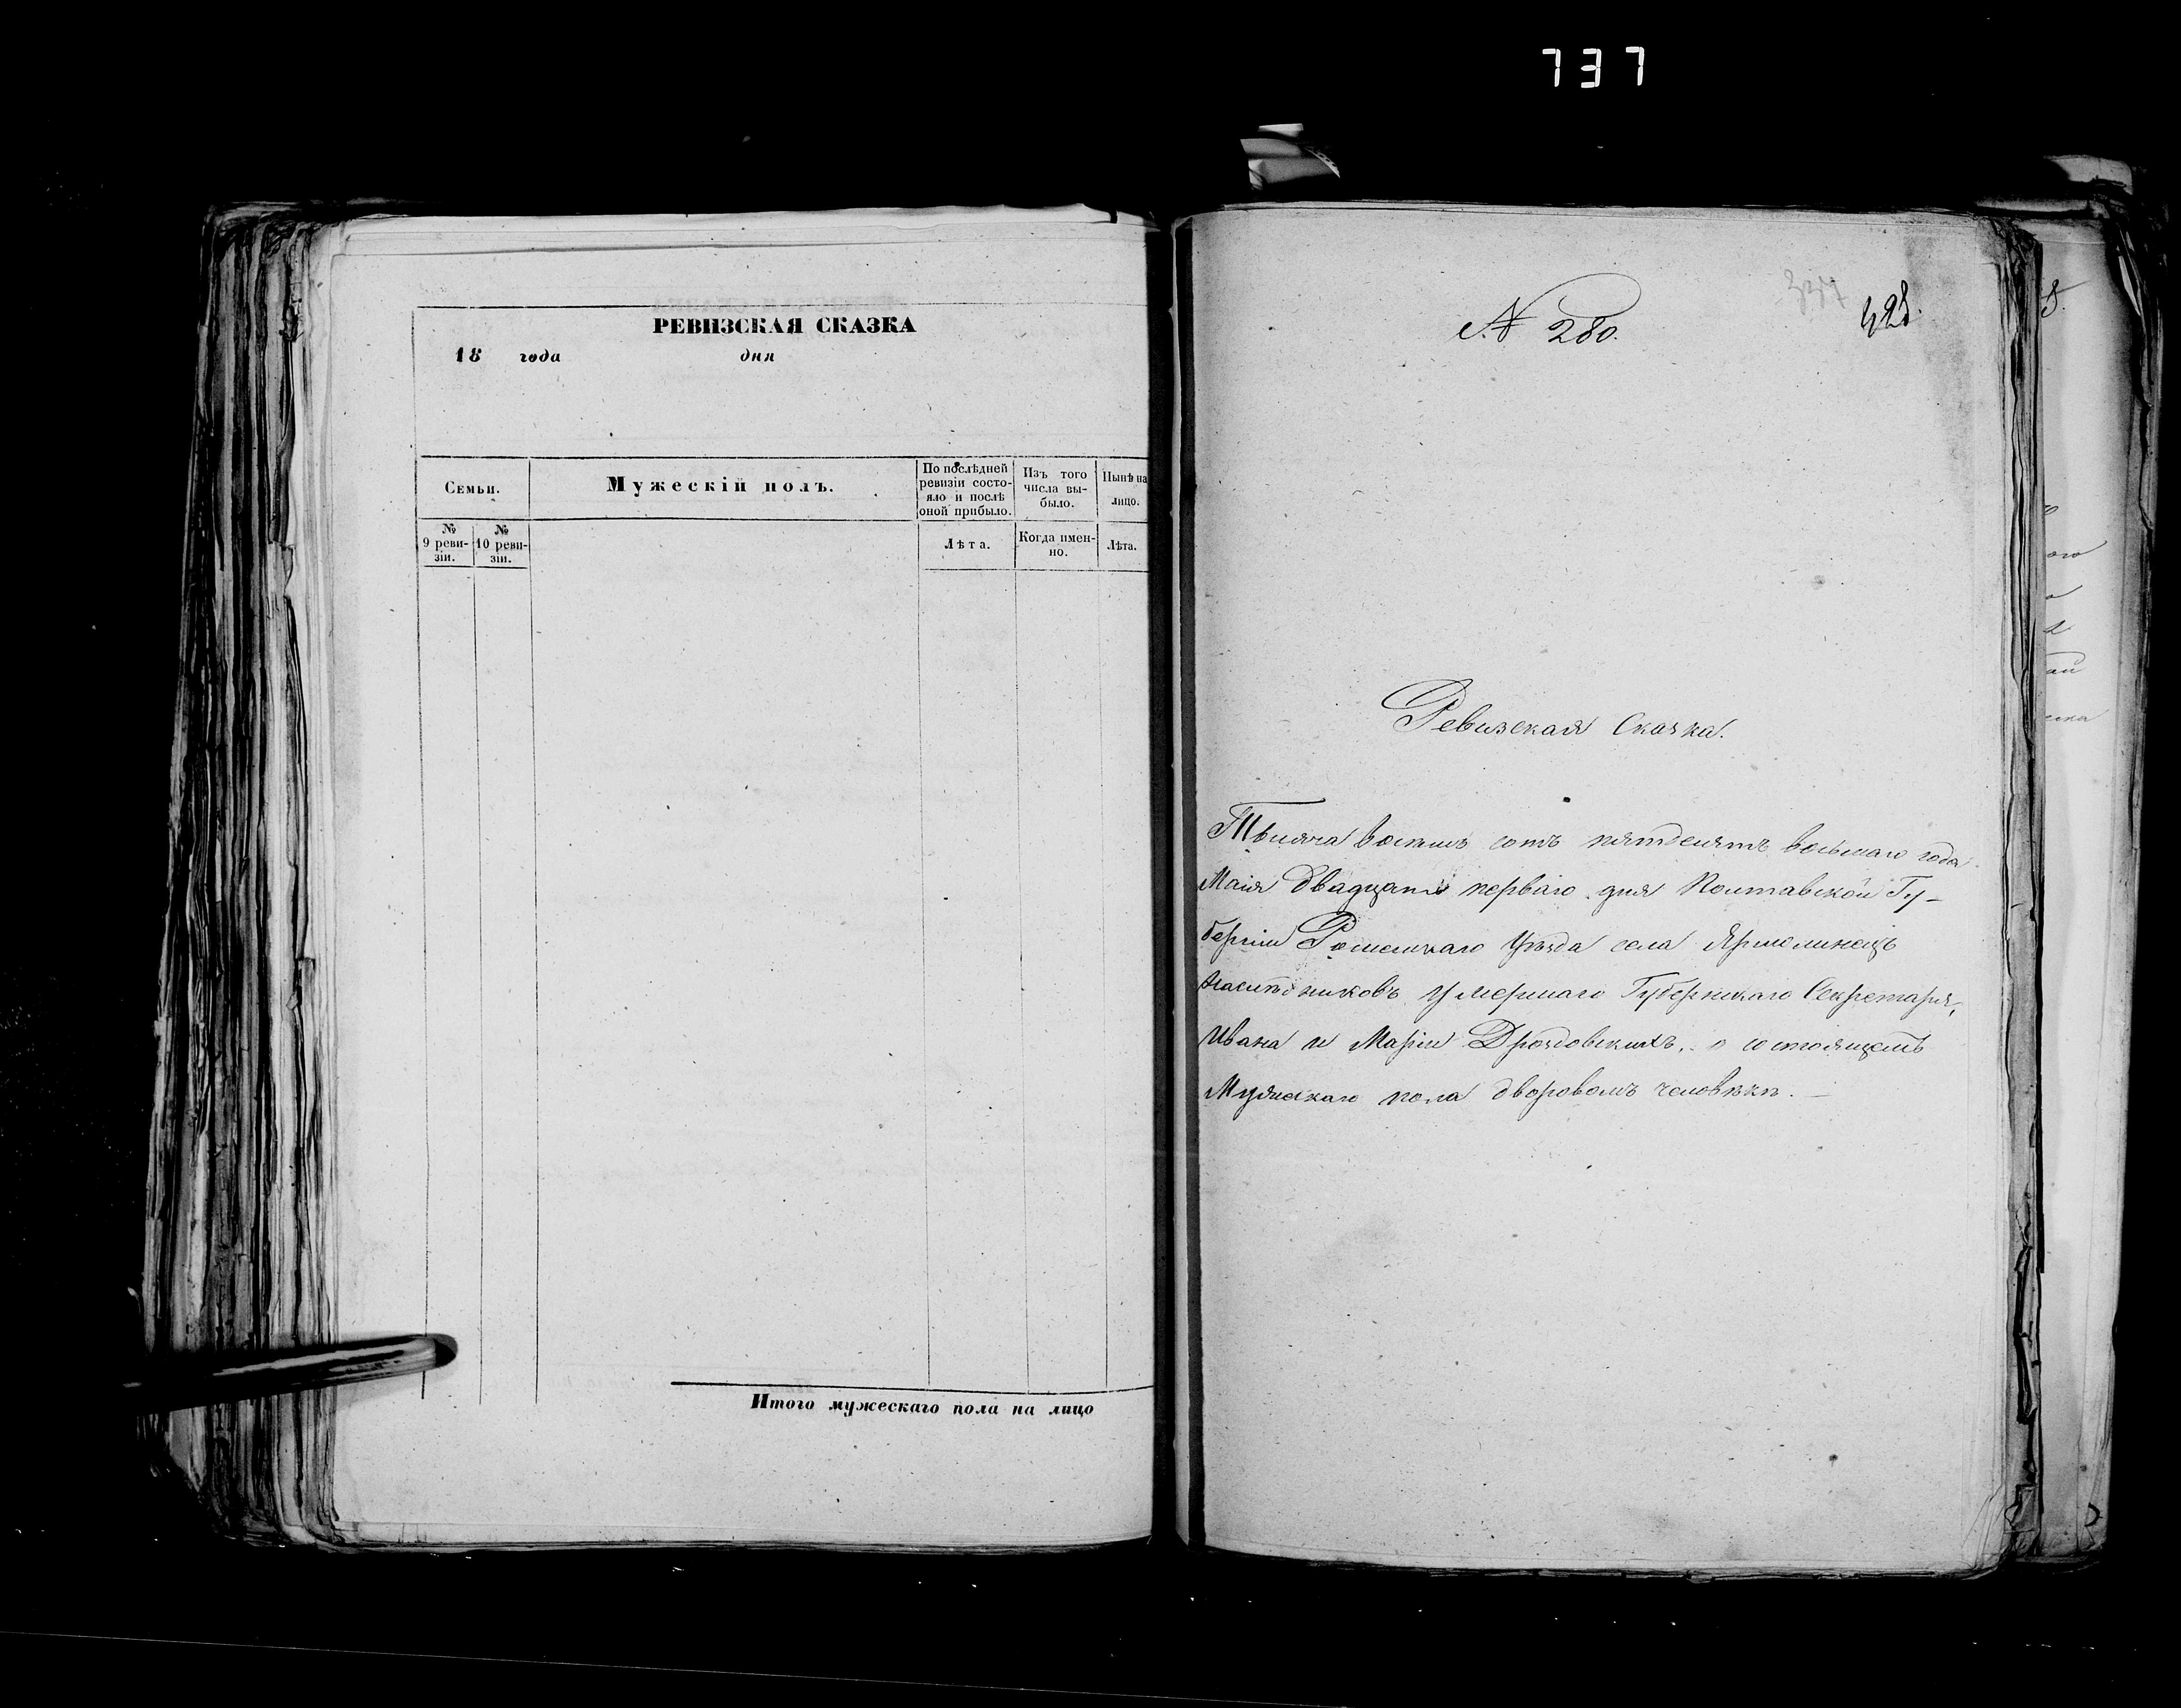 737
РЕВИЗСКАЯ СКАЗКА
18 года дня
Семьи.
Мужескій полъ.
По послѣдней ревизіи состо-яло и послѣ оной прибыло.
Изъ того числа вы-было.
Нынѣ на лицо.
№ 9 реви-зіи.
№ 10 реви-зіи.
Лѣта.
Когда имен-но.
Лѣта.
Итого мужескаго пола на лицо
№ 280.
Ревизская Сказка.
Тысяча восемь сотъ пятдесятъ восьмаго года
Маія двадцать перваго дня Полтавской Гу-
берніи Роменскаго Уѣзда села Ярмолинецъ
Наслѣдниковъ умершаго Губернскаго Секретаря,
Ивана и Маріи Дроздовскихъ, о состоящемъ
Мужескаго пола дворовомъ человѣкѣ.